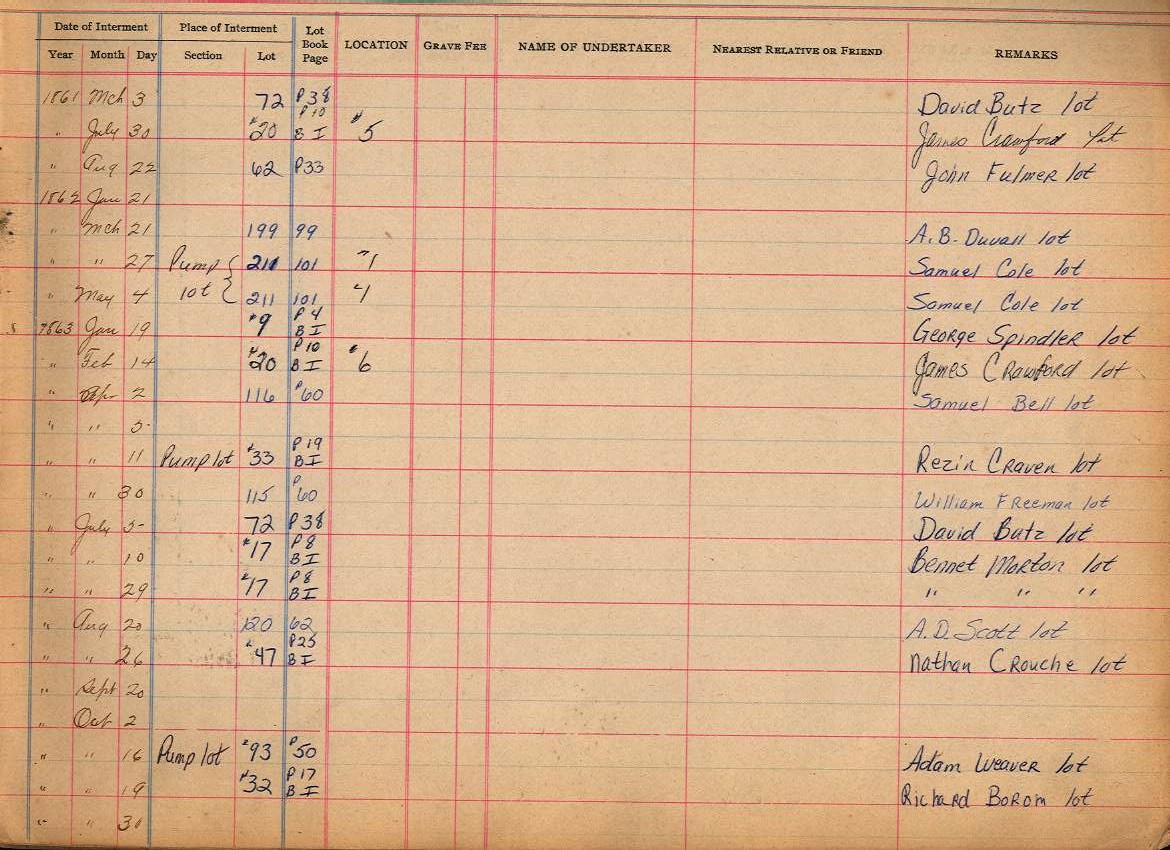 Date of Interment Place of Interment Lot Book Page LOCATION GRAVE FEE NAME OF UNDERTAKER NEAREST RELATIVE OR FRIEND REMARKS
Year Month Day Section Lot
1861 Mch 3 72 P38 David Butz lot
" July 30 #20 P10 B I #5 James Crawford lot
" Aug 22 62 P33 John Fulmer lot
1862 Jan 21
" Mch 21 199 99 A.B. Duvall lot
" " 27 Pump lot { 211 101 "1 Samuel Cole lot
" May 4 211 101 4 Samuel Cole lot
1863 Jan 19 #9 P4 B I George Spindler lot
" Feb 14 #20 P10 B I #6 James Crawford lot
" Apr 2 116 P60 Samuel Bell lot
" " 5
" " 11 Pump lot #33 P19 B I Rezin Craven lot
" " 30 115 P60 William Freeman lot
" July 5 72 P38 David Butz lot
" " 10 #17 P8 B I Bennet Morton lot
" " 29 #17 P8 B I " " "
" Aug 20 120 62 A.D. Scott lot
" " 26 #47 P25 B I Nathan Crouche lot
" Sept 20
" Oct 2
" " 16 Pump lot #93 P50 Adam Weaver lot
" " 19 #32 P17 B I Richard Borom lot
" " 30